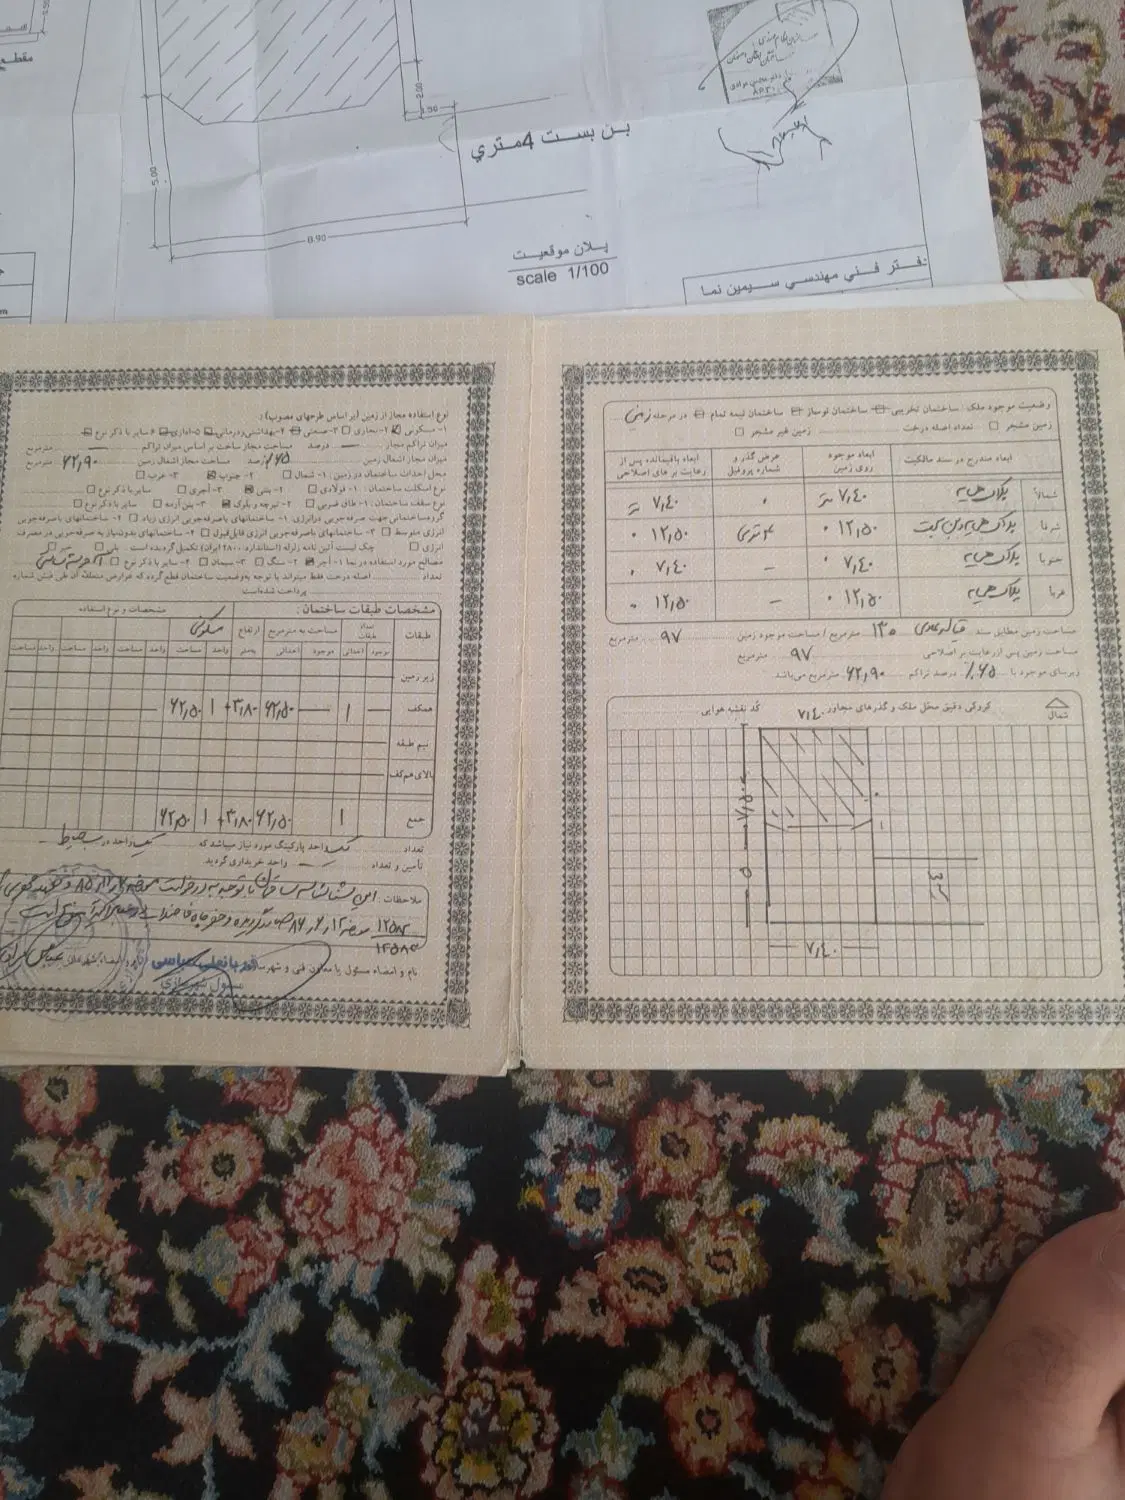 مقطع
5.00
2.00
1.00
8.90
بن بست 4متري
پلان موقعیت
scale 1/100
دفتر فني مهندسي سیمین نما
وضعیت موجود ملک: ساختمان تخریبی ساختمان نوساز ساختمان نیمه تمام در مرحله
زمین مشجر تعداد اصله درخت زمین غیر مشجر
ابعاد مندرج در سند مالکیت ابعاد موجود روی زمین عرض گذر و شماره پروفیل ابعاد باقیمانده پس از رعایت بر های اصلاحی
شمالاً پلاک همسایه ۷٫۴۰ متر ۷٫۴۰
شرقاً پلاک همسایه و بن بست ۱۲٫۵۰ ۴ متری ۱۲٫۵۰
جنوباً پلاک همسایه ۷٫۴۰ – ۷٫۴۰
غرباً پلاک همسایه ۱۲٫۵۰ – ۱۲٫۵۰
مساحت زمین مطابق سند قباله عادی ۱۳۰ مترمربع / مساحت موجود زمین ۹۷ مترمربع
مساحت زمین پس از رعایت بر اصلاحی ۹۷ مترمربع
زیربنای موجود با ٪۶۵ درصد تراکم ۶۲٫۹۰ مترمربع می‌باشد
شمال کروکی دقیق محل ملک و گذرهای مجاور کد نقشه هوایی
۷٫۴۰
۷٫۵۰
۵
۴ متری
۷٫۴۰
نوع استفاده مجاز از زمین (بر اساس طرحهای مصوب):
۱- مسکونی ۲- تجاری ۳- صنعتی ۴- بهداشتی ودرمانی ۵- اداری ۶ سایر با ذکر نوع
میزان تراکم مجاز — درصد مساحت مجاز ساخت بر اساس میزان تراکم — مترمربع
میزان مجاز اشغال زمین ٪۶۵ درصد مساحت مجاز اشغال زمین ۶۲٫۹۰ مترمربع
محل احداث ساختمان در زمین: ۱- شمال ۲- جنوب ۳- غرب
نوع اسکلت ساختمان: ۱- فولادی ۲- بتنی ۳- آجری سایر با ذکر نوع
نوع سقف ساختمان: ۱- طاق ضربی ۲- تیرچه و بلوک ۳- بتن آرمه سایر با ذکر نوع
گروه ساختمانی جهت صرفه جویی درانرژی ۱- ساختمانهای باصرفه‌جویی انرژی زیاد ۲- ساختمانهای باصرفه‌جویی
انرژی متوسط ۳- ساختمانهای باصرفه‌جویی انرژی قابل‌قبول ۴- ساختمانهای بدون‌نیاز به صرفه‌جویی در مصرف
انرژی چک لیست آئین نامه زلزله (استاندارد ۲۸۰۰ ایران) تکمیل گردیده است. بلی خیر
مصالح مورد استفاده در نما ۱- آجر ۲- سنگ ۳- سیمان ۴- سایر با ذکر نوع
تعداد اصله درخت فقط میتواند با توجه به‌وضعیت ساختمان قطع گردد که عوارض متعلقه آن طی فیش شماره
پرداخت شده‌است
مشخصات طبقات ساختمان: مشخصات و نوع استفاده
طبقات تعداد طبقات مساحت به مترمربع ارتفاع مسکونی
موجود احداثی موجود احداثی به‌متر واحد مساحت واحد مساحت واحد مساحت واحد مساحت
زیرزمین
همکف — ۱ — ۶۲٫۵۰ +۳٫۸۰ ۱ ۶۲٫۵۰
نیم طبقه
بالای هم‌کف
جمع ۱ ۶۲٫۵۰ +۳٫۸۰ ۱ ۶۲٫۵۰
تعداد یک واحد پارکینگ مورد نیاز میباشد که یک واحد در حیاط
تأمین و تعداد — واحد خریداری گردید
ملاحظات: این شناسنامه ساختمان با توجه به درخواست
نام و امضاء مسئول یا معاون فنی و شهرسازی
قربانعلی عباسی
مسئول شهرسازی